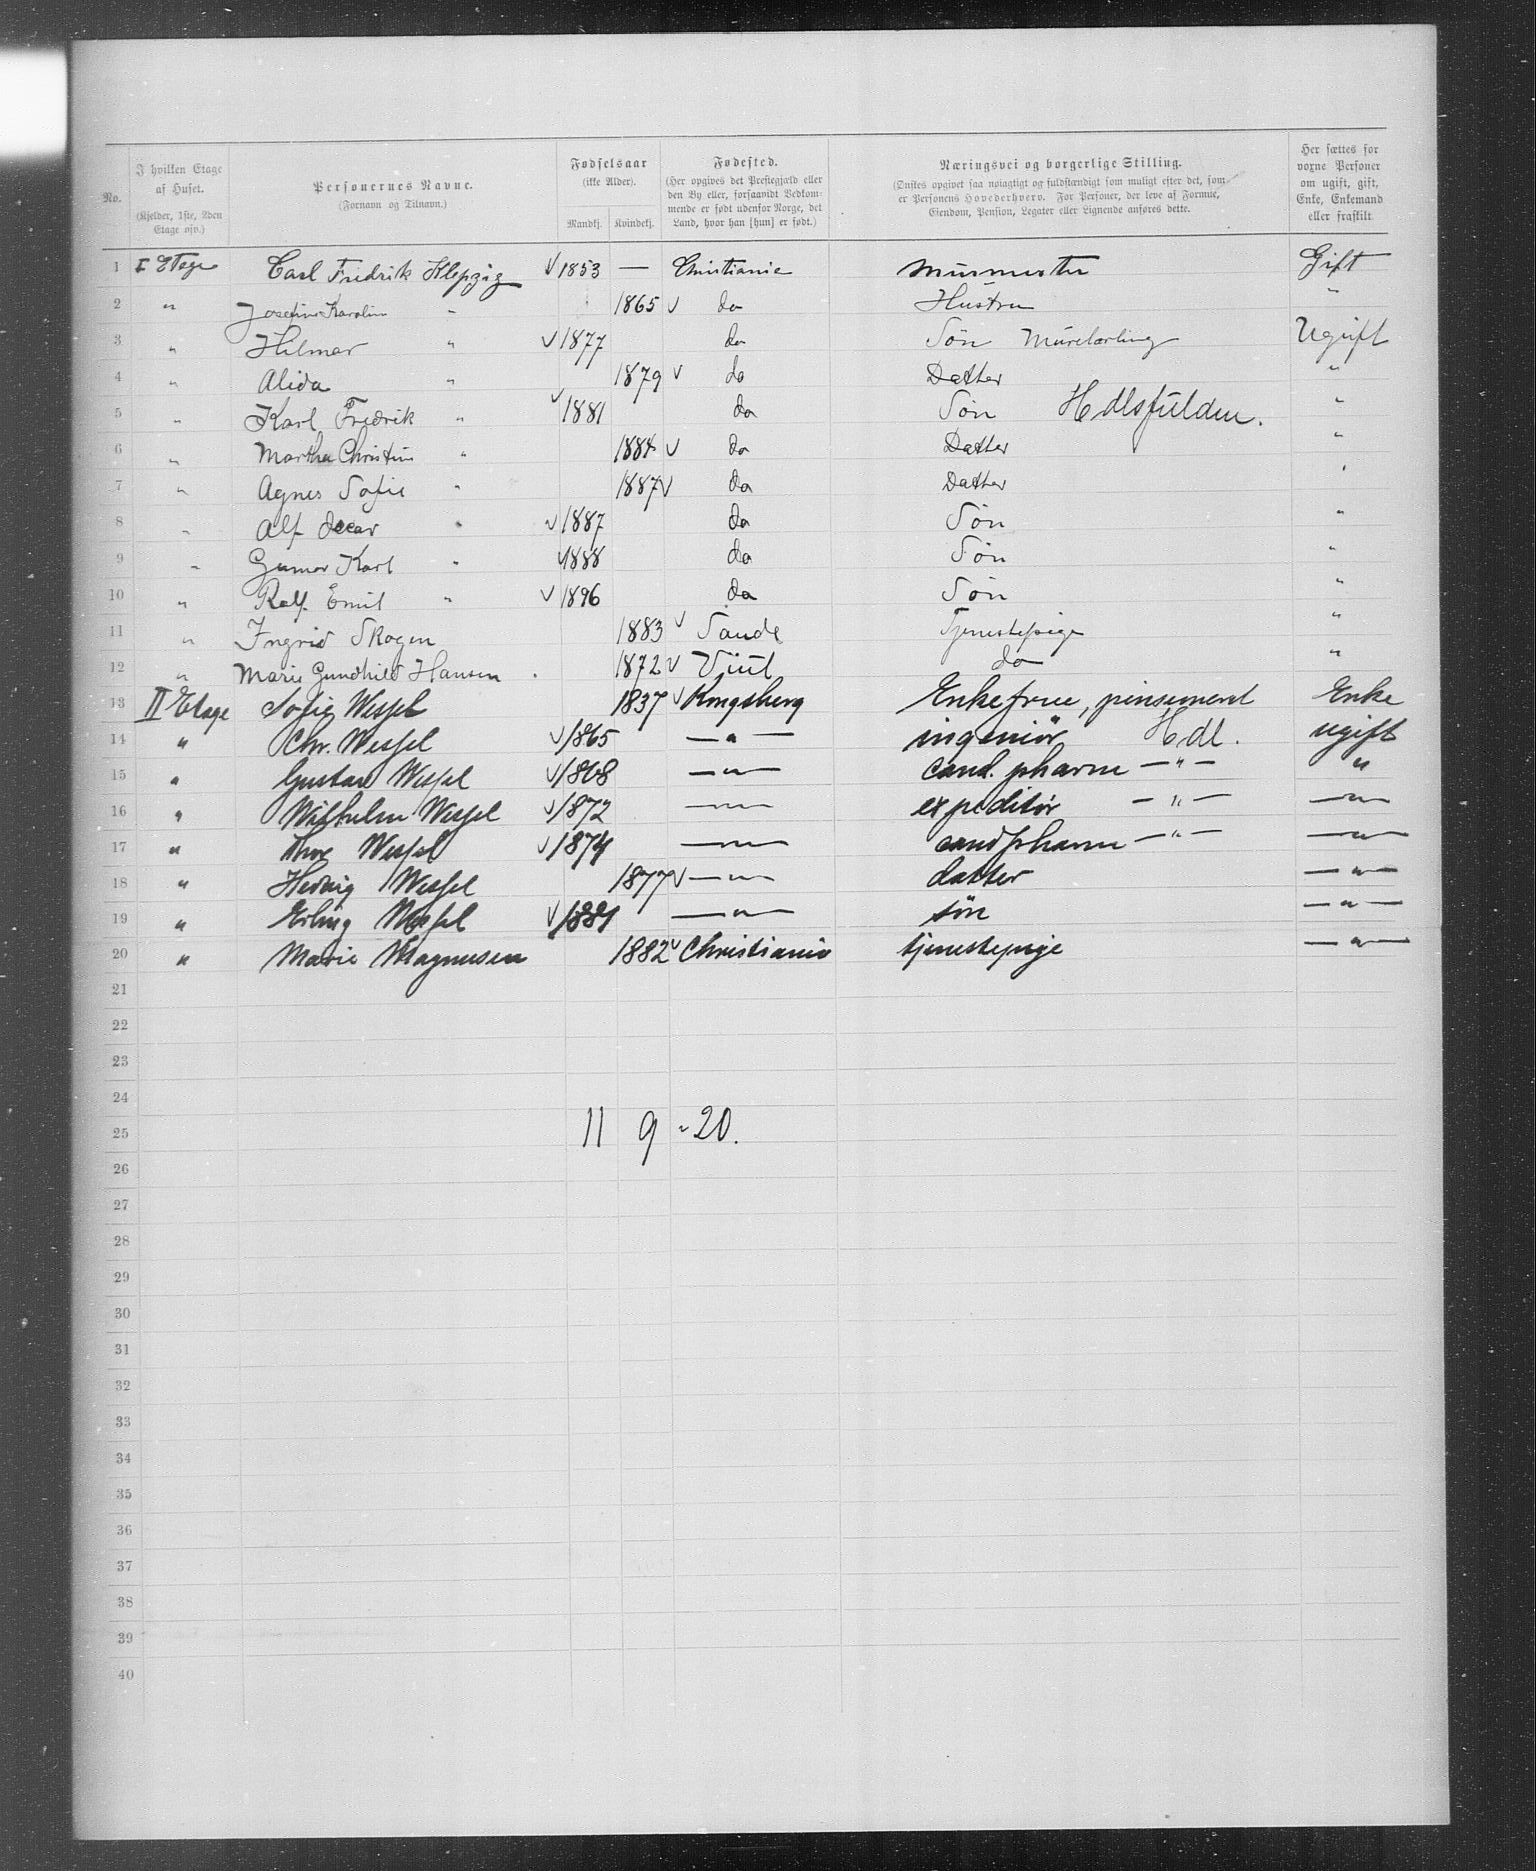 No. I hvilken Etage af Huset. (Kjelder, 1ste, 2den Etage osv.) Personernes Navne. (Fornavn og Tilnavn.) Fødselsaar (ikke Alder). Mandkj. Kvindekj. Fødested. (Her opgives det Prestegjæld eller den By eller, forsaavidt Vedkommende er født udenfor Norge, det Land, hvor han [hun] er født.) Næringsvei og borgerlige Stilling. (Ønskes opgivet saa nøiagtigt og fuldstændigt som muligt efter det, som er Personens Hovederhverv. For Personer, der leve af Formue, Eiendom, Pension, Legater eller Lignende anføres dette. Her sættes for voxne Personer om ugift, gift, Enke, Enkemand eller fraskilt
1 I Etage Carl Fridrik Klepzig √ 1853 — Christiania Murmester Gift
2 " Josefine Karoline " 1865 √ do Hustru "
3 " Hilmar " √ 1877 do Søn Murelærling Ugift
4 " Alida " 1879 √ do Datter "
5 " Karl Fredrik " √ 1881 do Søn Hdlsfuldm. "
6 " Martha Christine " 1884 √ do Datter "
7 " Agnes Sofie " 1887 √ do Datter "
8 " Alf Oscar " √ 1887 do Søn "
9 " Gunnar Karl " √ 1888 do Søn "
10 " Ralf Emil " √ 1896 do Søn "
11 " Ingrid Skogen 1883 √ Sande Tjenestepige "
12 " Marie Gundhild Hansen 1872 √ do "
13 II Etage Sofie Wessel 1837 √ Kongsberg Enkefrue, pensioneret Enke
14 " Chr. Wessel √ 1865 — " — ingeniør Hdl. ugift
15 " Gustav Wessel √ 1868 — " — cand. pharm — " — "
16 " Wilhelm Wessel √ 1872 — " — expeditør — " — — " —
17 " Thor Wessel √ 1874 — " — cand pharm — " — — " —
18 " Hedvig Wessel 1877 √ — " — datter — " —
19 " Erling Wessel √ 1881 — " — søn — " —
20 " Marie Magnusen 1882 √ Christiania tjenestepige — " —
21
22
23
24
25 11 9 - 20.
26
27
28
29
30
31
32
33
34
35
36
37
38
39
40